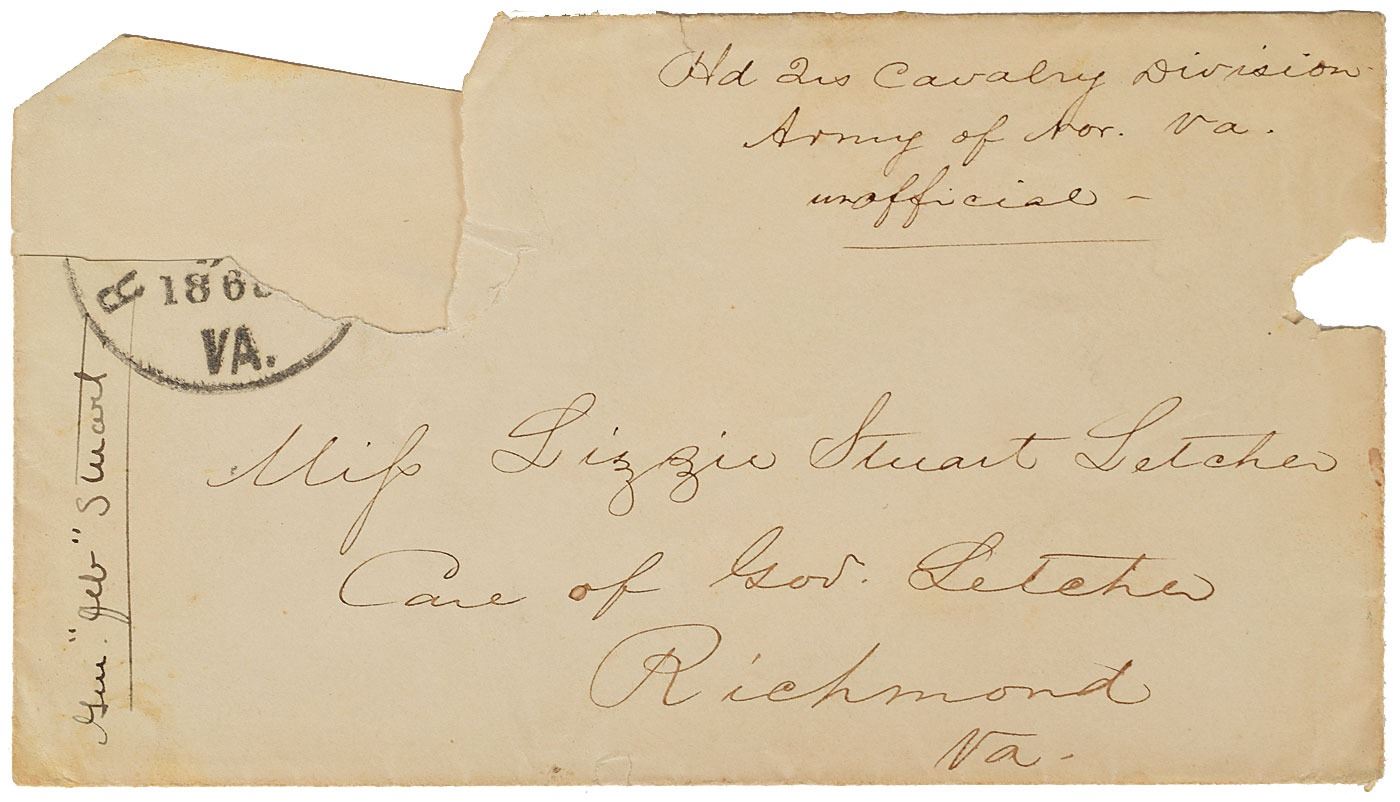 Hd Qrs Cavalry Division
Army of Nor. Va.
unofficial -
R
186
VA.
Gen. "Jeb" Stuart
Miss Lizzie Stuart Letcher
Care of Gov. Letcher
Richmond
Va.